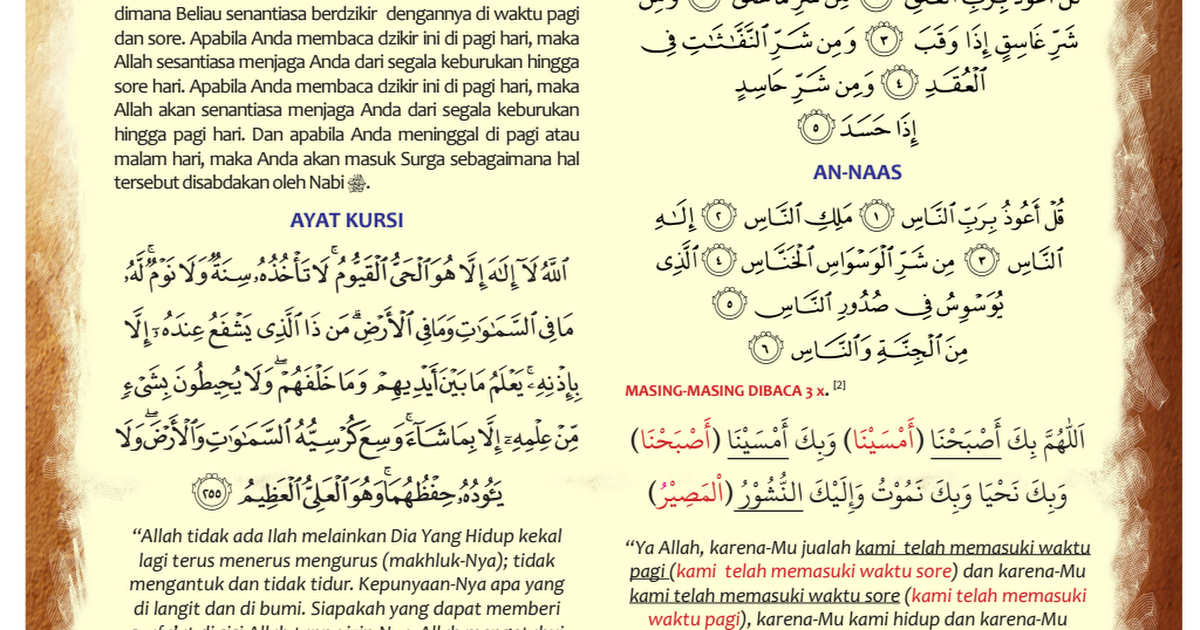 dimana Beliau senantiasa berdzikir dengannya di waktu pagi
dan sore. Apabila Anda membaca dzikir ini di pagi hari, maka
Allah sesantiasa menjaga Anda dari segala keburukan hingga
sore hari. Apabila Anda membaca dzikir ini di pagi hari, maka
Allah akan senantiasa menjaga Anda dari segala keburukan
hingga pagi hari. Dan apabila Anda meninggal di pagi atau
malam hari, maka Anda akan masuk Surga sebagaimana hal
tersebut disabdakan oleh Nabi ﷺ.
AYAT KURSI
ٱللَّهُ لَآ إِلَـٰهَ إِلَّا هُوَ ٱلْحَىُّ ٱلْقَيُّومُ ۚ لَا تَأْخُذُهُۥ سِنَةٌ وَلَا نَوْمٌ ۚ لَّهُۥ
مَا فِى ٱلسَّمَـٰوَٰتِ وَمَا فِى ٱلْأَرْضِ ۗ مَن ذَا ٱلَّذِى يَشْفَعُ عِندَهُۥٓ إِلَّا
بِإِذْنِهِۦ ۚ يَعْلَمُ مَا بَيْنَ أَيْدِيهِمْ وَمَا خَلْفَهُمْ ۖ وَلَا يُحِيطُونَ بِشَىْءٍ
مِّنْ عِلْمِهِۦٓ إِلَّا بِمَا شَآءَ ۚ وَسِعَ كُرْسِيُّهُ ٱلسَّمَـٰوَٰتِ وَٱلْأَرْضَ ۖ وَلَا
يَـُٔودُهُۥ حِفْظُهُمَا ۚ وَهُوَ ٱلْعَلِىُّ ٱلْعَظِيمُ ﴿٢٥٥﴾
“Allah tidak ada Ilah melainkan Dia Yang Hidup kekal
lagi terus menerus mengurus (makhluk-Nya); tidak
mengantuk dan tidak tidur. Kepunyaan-Nya apa yang
di langit dan di bumi. Siapakah yang dapat memberi
شَرِّ غَاسِقٍ إِذَا وَقَبَ ﴿٣﴾ وَمِن شَرِّ ٱلنَّفَّـٰثَـٰتِ فِى
ٱلْعُقَدِ ﴿٤﴾ وَمِن شَرِّ حَاسِدٍ
إِذَا حَسَدَ ﴿٥﴾
AN-NAAS
قُلْ أَعُوذُ بِرَبِّ ٱلنَّاسِ ﴿١﴾ مَلِكِ ٱلنَّاسِ ﴿٢﴾ إِلَـٰهِ
ٱلنَّاسِ ﴿٣﴾ مِن شَرِّ ٱلْوَسْوَاسِ ٱلْخَنَّاسِ ﴿٤﴾ ٱلَّذِى
يُوَسْوِسُ فِى صُدُورِ ٱلنَّاسِ ﴿٥﴾
مِنَ ٱلْجِنَّةِ وَٱلنَّاسِ ﴿٦﴾
MASING-MASING DIBACA 3 x. [2]
اَللّٰهُمَّ بِكَ أَصْبَحْنَا (أَمْسَيْنَا) وَبِكَ أَمْسَيْنَا (أَصْبَحْنَا)
وَبِكَ نَحْيَا وَبِكَ نَمُوْتُ وَإِلَيْكَ النُّشُوْرُ (الْمَصِيْرُ)
“Ya Allah, karena-Mu jualah kami telah memasuki waktu
pagi (kami telah memasuki waktu sore) dan karena-Mu
kami telah memasuki waktu sore (kami telah memasuki
waktu pagi), karena-Mu kami hidup dan karena-Mu